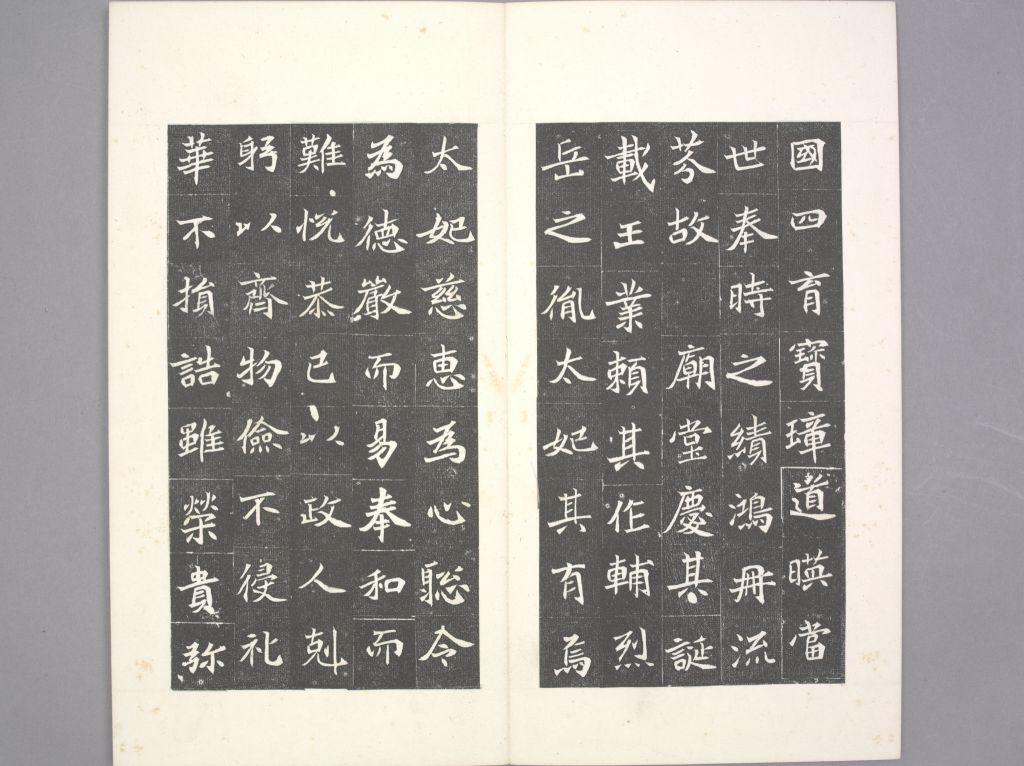 國四育寶璋道暎當
世奉時之績鴻冊流
芬故 廟堂慶其誕
載王業賴其作輔烈
岳之胤太妃其有焉
太妃慈惠為心聡令
為德嚴而易奉和而
難悅恭己以政人剋
躬以齊物儉不侵礼
華不損誥雖榮貴弥